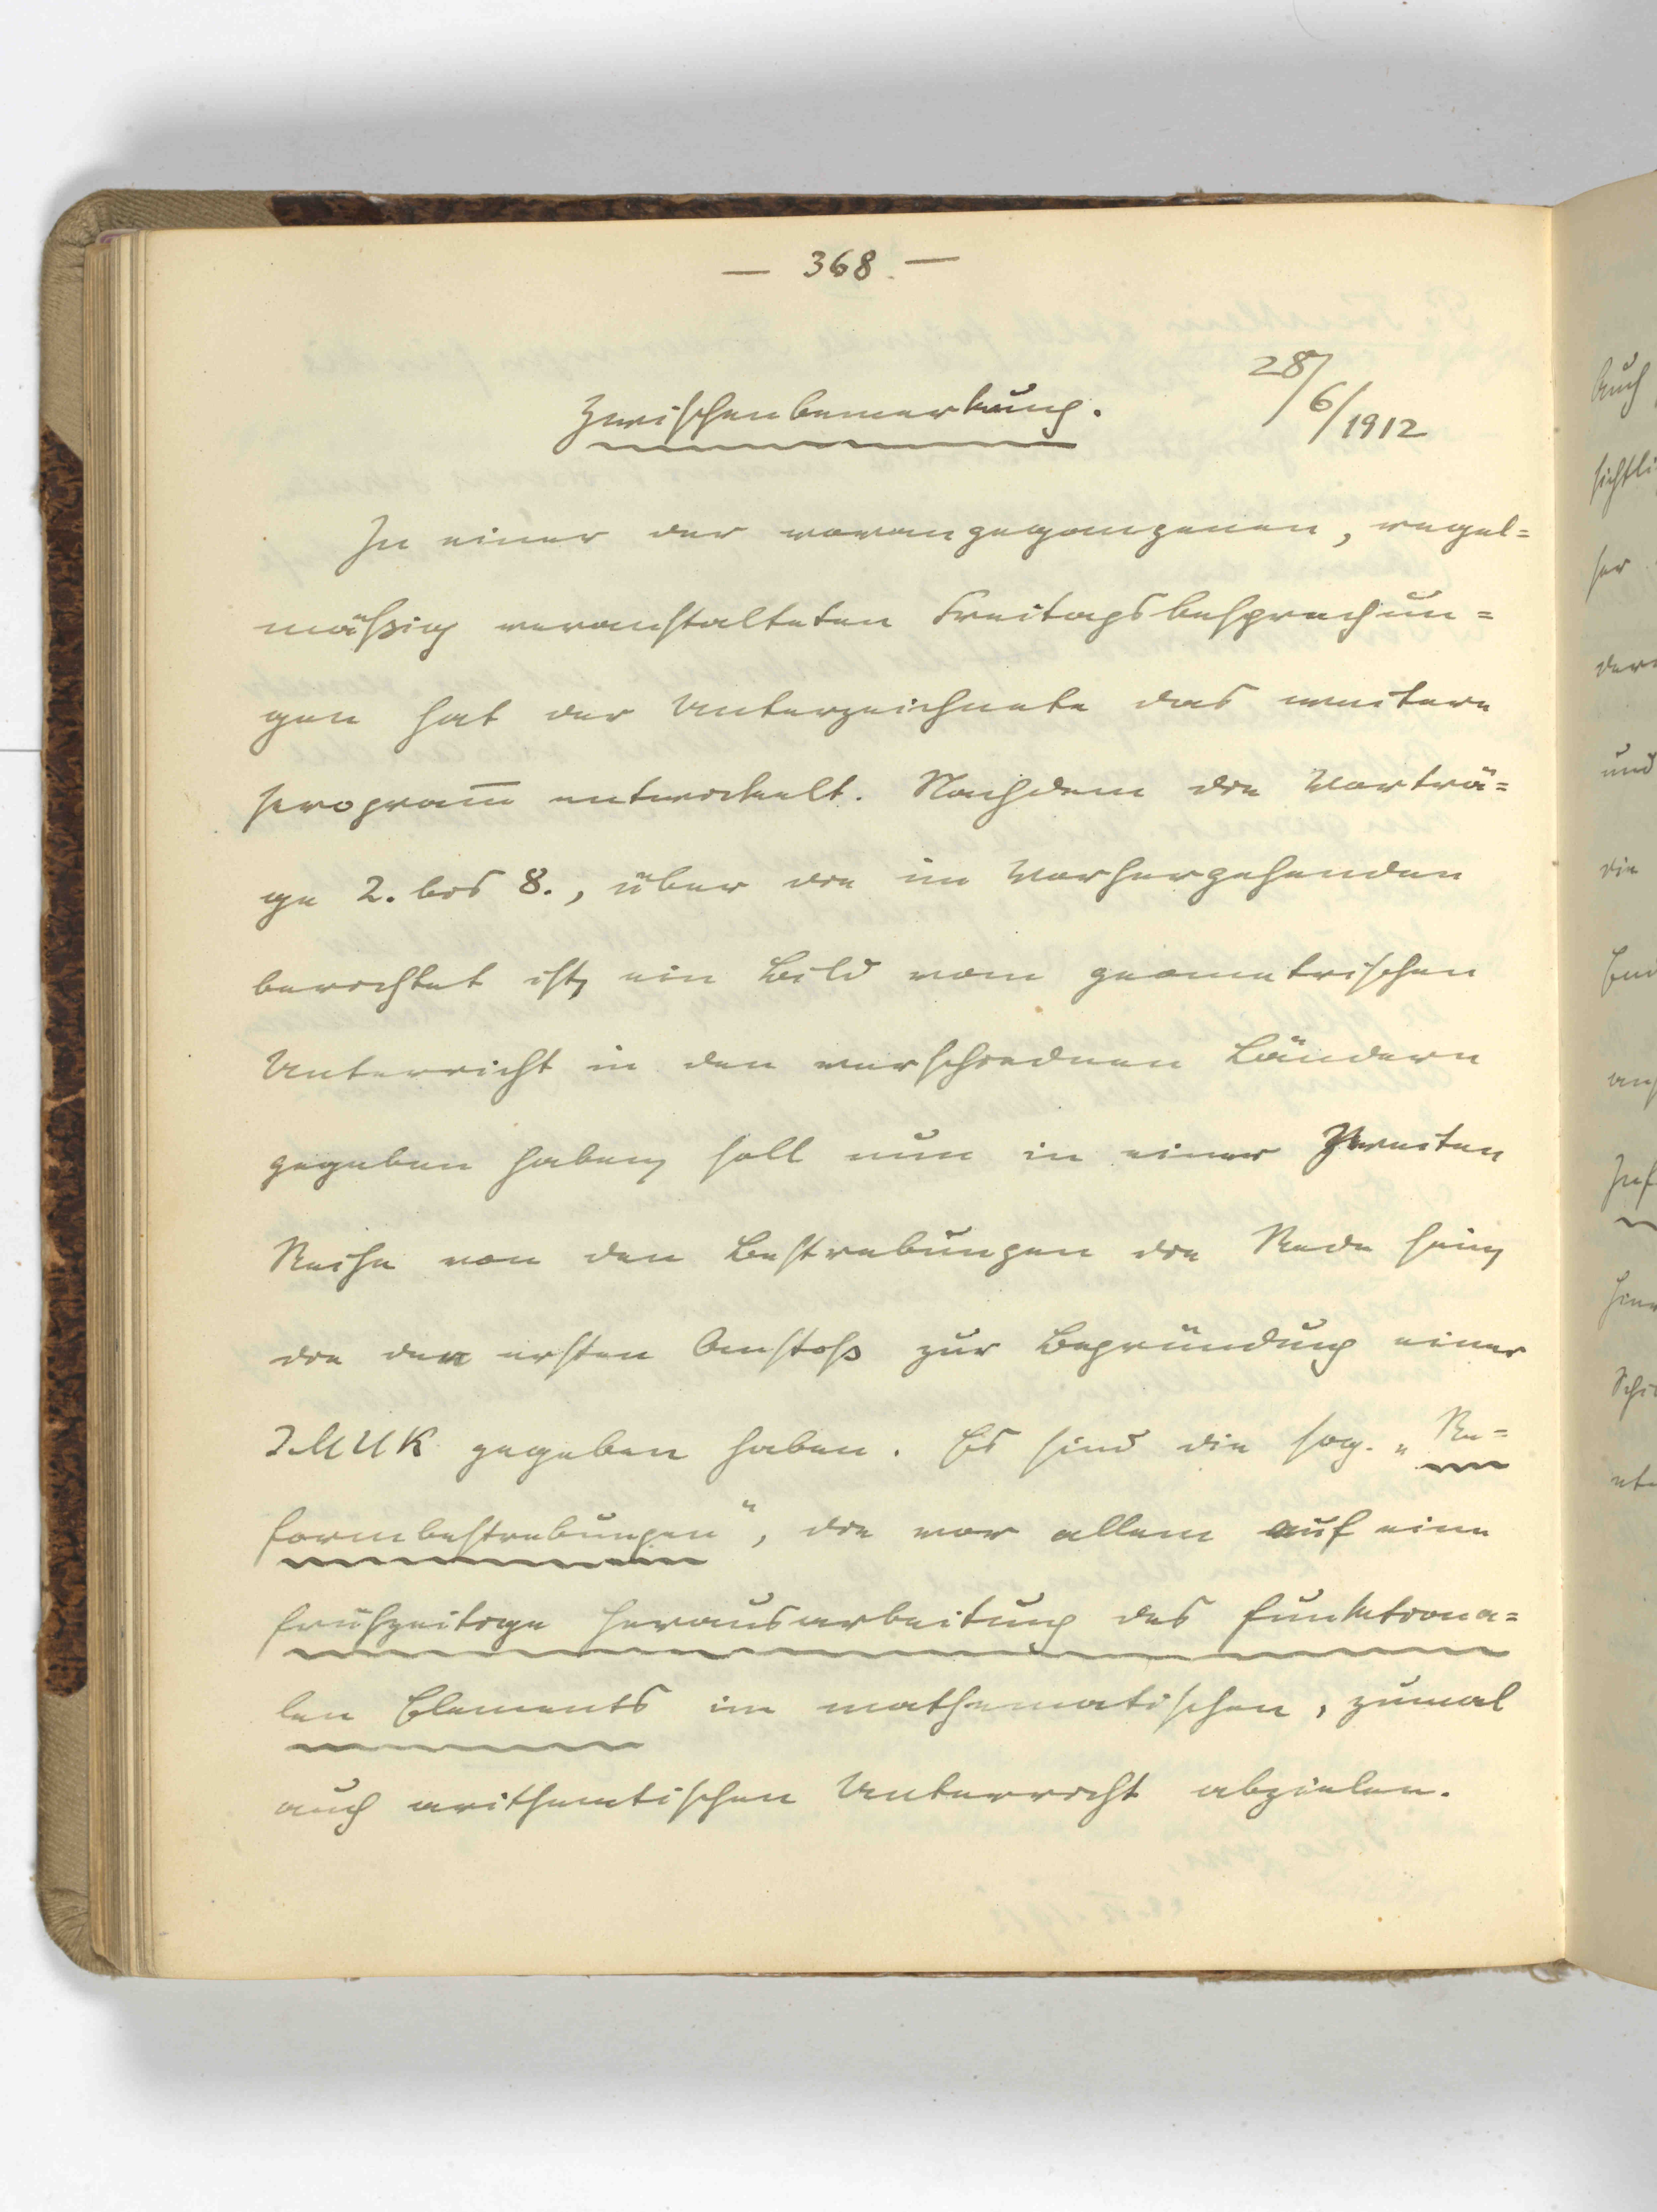 — 368. —
28/6/1912
Zwischenbemerkung.
In einer der vorangegangenen, regel=
mäßig veranstalteten Freitagsbesprechun=
gen hat der Unterzeichnete das weitere
Programm entwickelt. Nachdem die Vorträ=
ge 2. bis 8., über die im Vorhergehenden
berichtet ist, ein Bild vom geometrischen
Unterricht in den verschiednen Ländern
gegeben haben, soll nun in einer zweiten
Reihe von den Bestrebungen die Rede sein,
die den ersten Anstoß zur Begründung einer
IMUK gegeben haben. Es sind die sog. „Re=
formbestrebungen", die vor allem auf eine
frühzeitige Herausarbeitung des funktiona=
len Elements im mathematischen, zumal
auch arithmetischen Unterricht abzielen.
Auch
sichtli
her
und
die
Schi